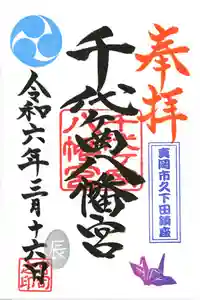 奉拝
真岡市久下田鎮座
千代ヶ岡八幡宮
令和六年三月十六日
辰